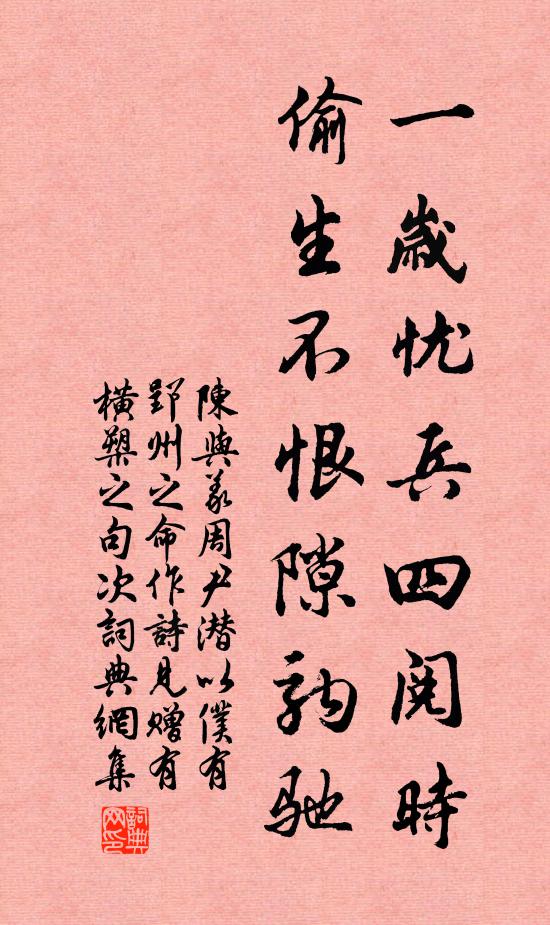 一歲忧兵四閱時
偷生不恨隙駒馳
陳與義周尹潛以僕有
郢州之命作詩見贈有
橫槊之句次詞典網集
詞典
网印